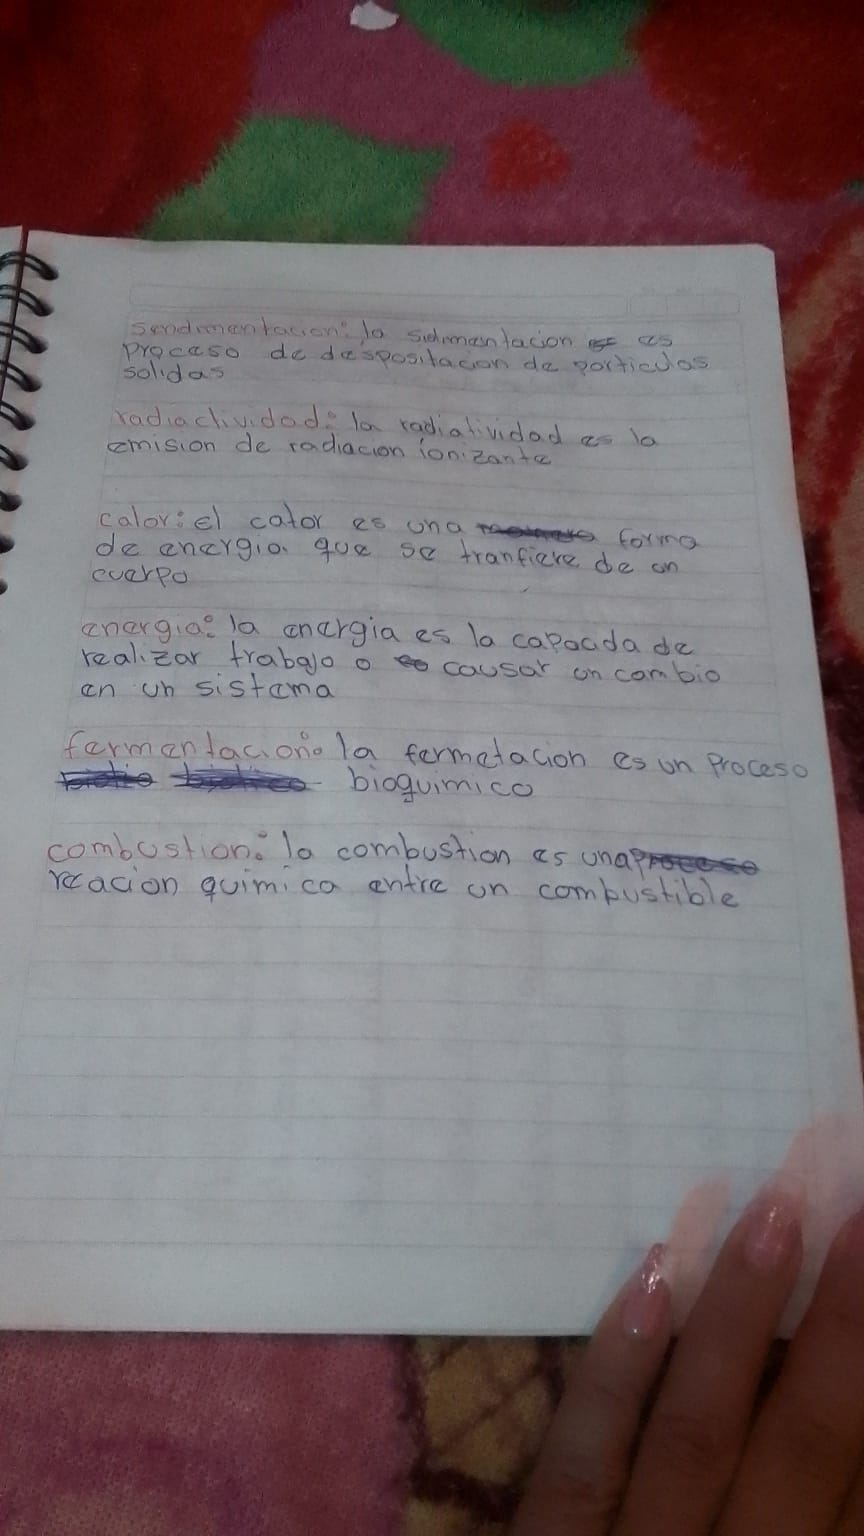 sendimentacion: la sidimentacion es
proceso de despositacion de particulas
solidas
radiactividad: la radiatividad es la
emision de radiacion ionizante
calor: el calor es una forma
de energia que se tranfiere de un
cuerpo
energia: la energia es la capacida de
realizar trabajo o causar un cambio
en un sistema
fermentacion: la fermetacion es un proceso
bioquimico
combustion: la combustion es una
reacion quimica entre un combustible